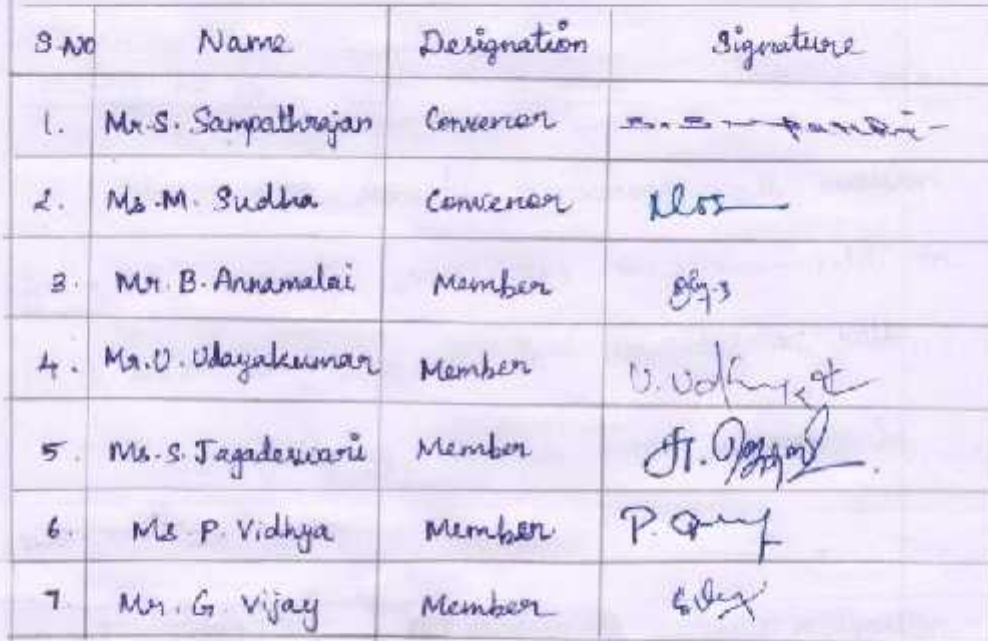 S.NO Name Designation Signature
1. Mr.S. Sampathrajan Convenor
2. Ms.M. Sudha Convenor
3. Mr. B. Annamalai Member
4. Mr.U. Udayakumar Member
5. Ms.S. Jagadeswari Member
6 Ms.P. Vidhya Member P.
7. Mr. G. Vijay Member